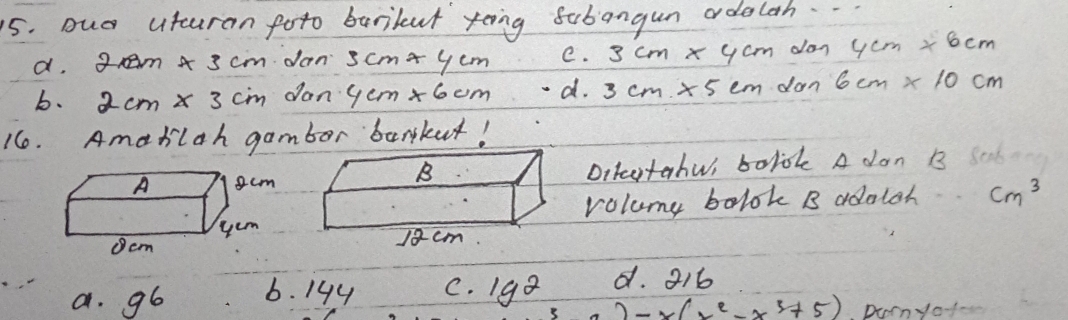 15. Dua ukuran foto berikut yang sebangun adalah...
a. 2 cm x 3 cm dan 3 cm x 4 cm c. 3 cm x 4 cm dan 4 cm x 6 cm
b. 2 cm x 3 cm dan 4 cm x 6 cm d. 3 cm x 5 cm dan 6 cm x 10 cm
16. Amatilah gambar berikut!
A 2cm 4cm 8cm
B 12 cm
Diketahui balok A dan B
volume balok B adalah ... cm³
a. 96 b. 144 c. 192 d. 216
) - x(x² - x³ + 5)